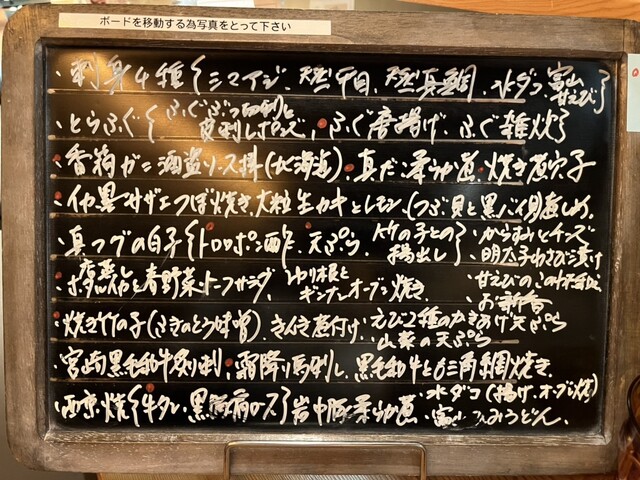 ボードを移動する為写真をとって下さい
・刺身4種{シマアジ、天然平目、天然真鯛、水ダコ、富山甘えび}
・とらふぐ{ふぐぶつ切刺と皮刺しポン酢、ふぐ唐揚げ、ふぐ雑炊}
・香箱ガニ酒盗ソース掛(北海道)、真だこ柔らか煮、焼き煮穴子
サザエつぼ焼き、大粒生カキとレモン、(つぶ貝と黒バイ貝)
・真フグの白子{トロッポン酒
天ぷら、竹の子との揚出し}・からすみとチーズ
・明太子わさび漬け
ホタルイカと春野菜
ゆり根とギンナンオーブン焼き
・甘えびの
・お新香
・焼き竹の子(ふきのとう味噌)、きんき煮付け、えび2種のかきあげ天ぷら
・山菜の天ぷら
・宮崎黒毛和牛炙り刺、霜降り馬刺し、黒毛和牛と
網焼き
・西京焼{牛タン、
岩中豚柔らか煮
・水ダコ(揚げ、オーブン焼)
うどん